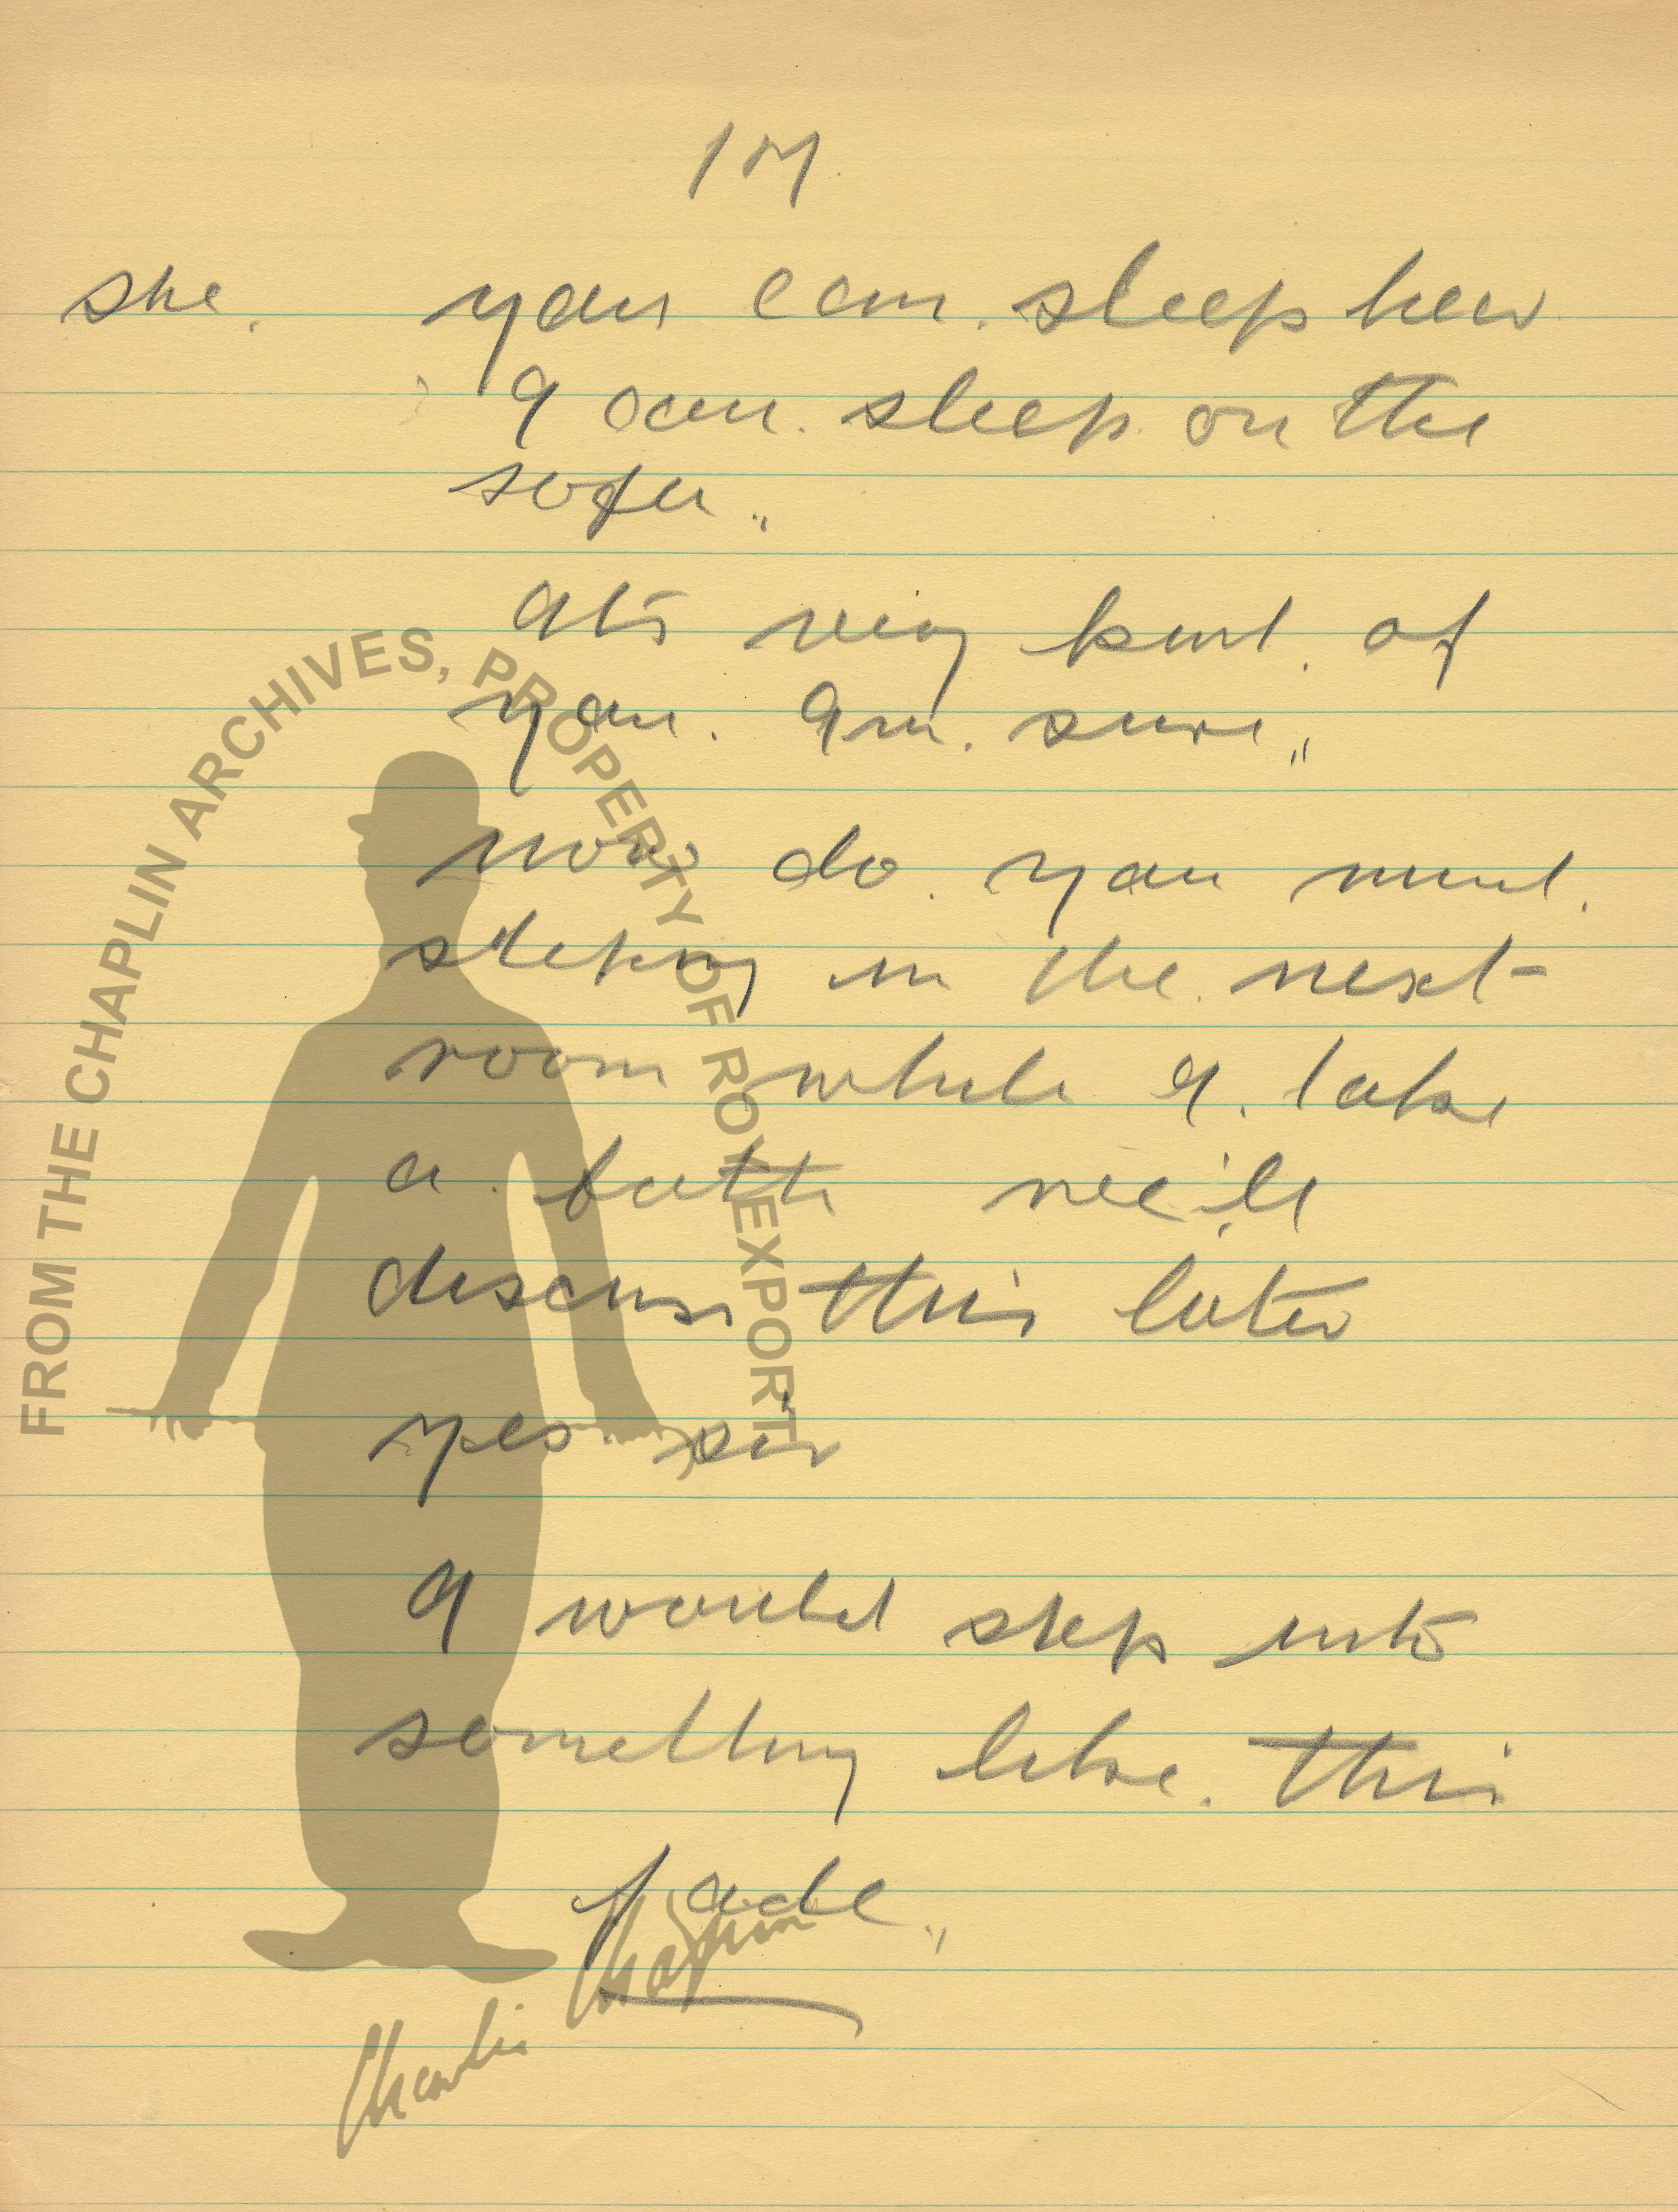 she. you can. sleep here
I can. sleep. on the
sofa"
Its very kind. of
you. Im. sure"
now do. you mind.
steping in the. next
room while I. take
a. bath we'll
discuss this later
yes. sir
I would step into
something like. this
fade"
FROM THE CHAPLIN ARCHIVES, PROPERTY OF ROY EXPORT
Charlie Chaplin